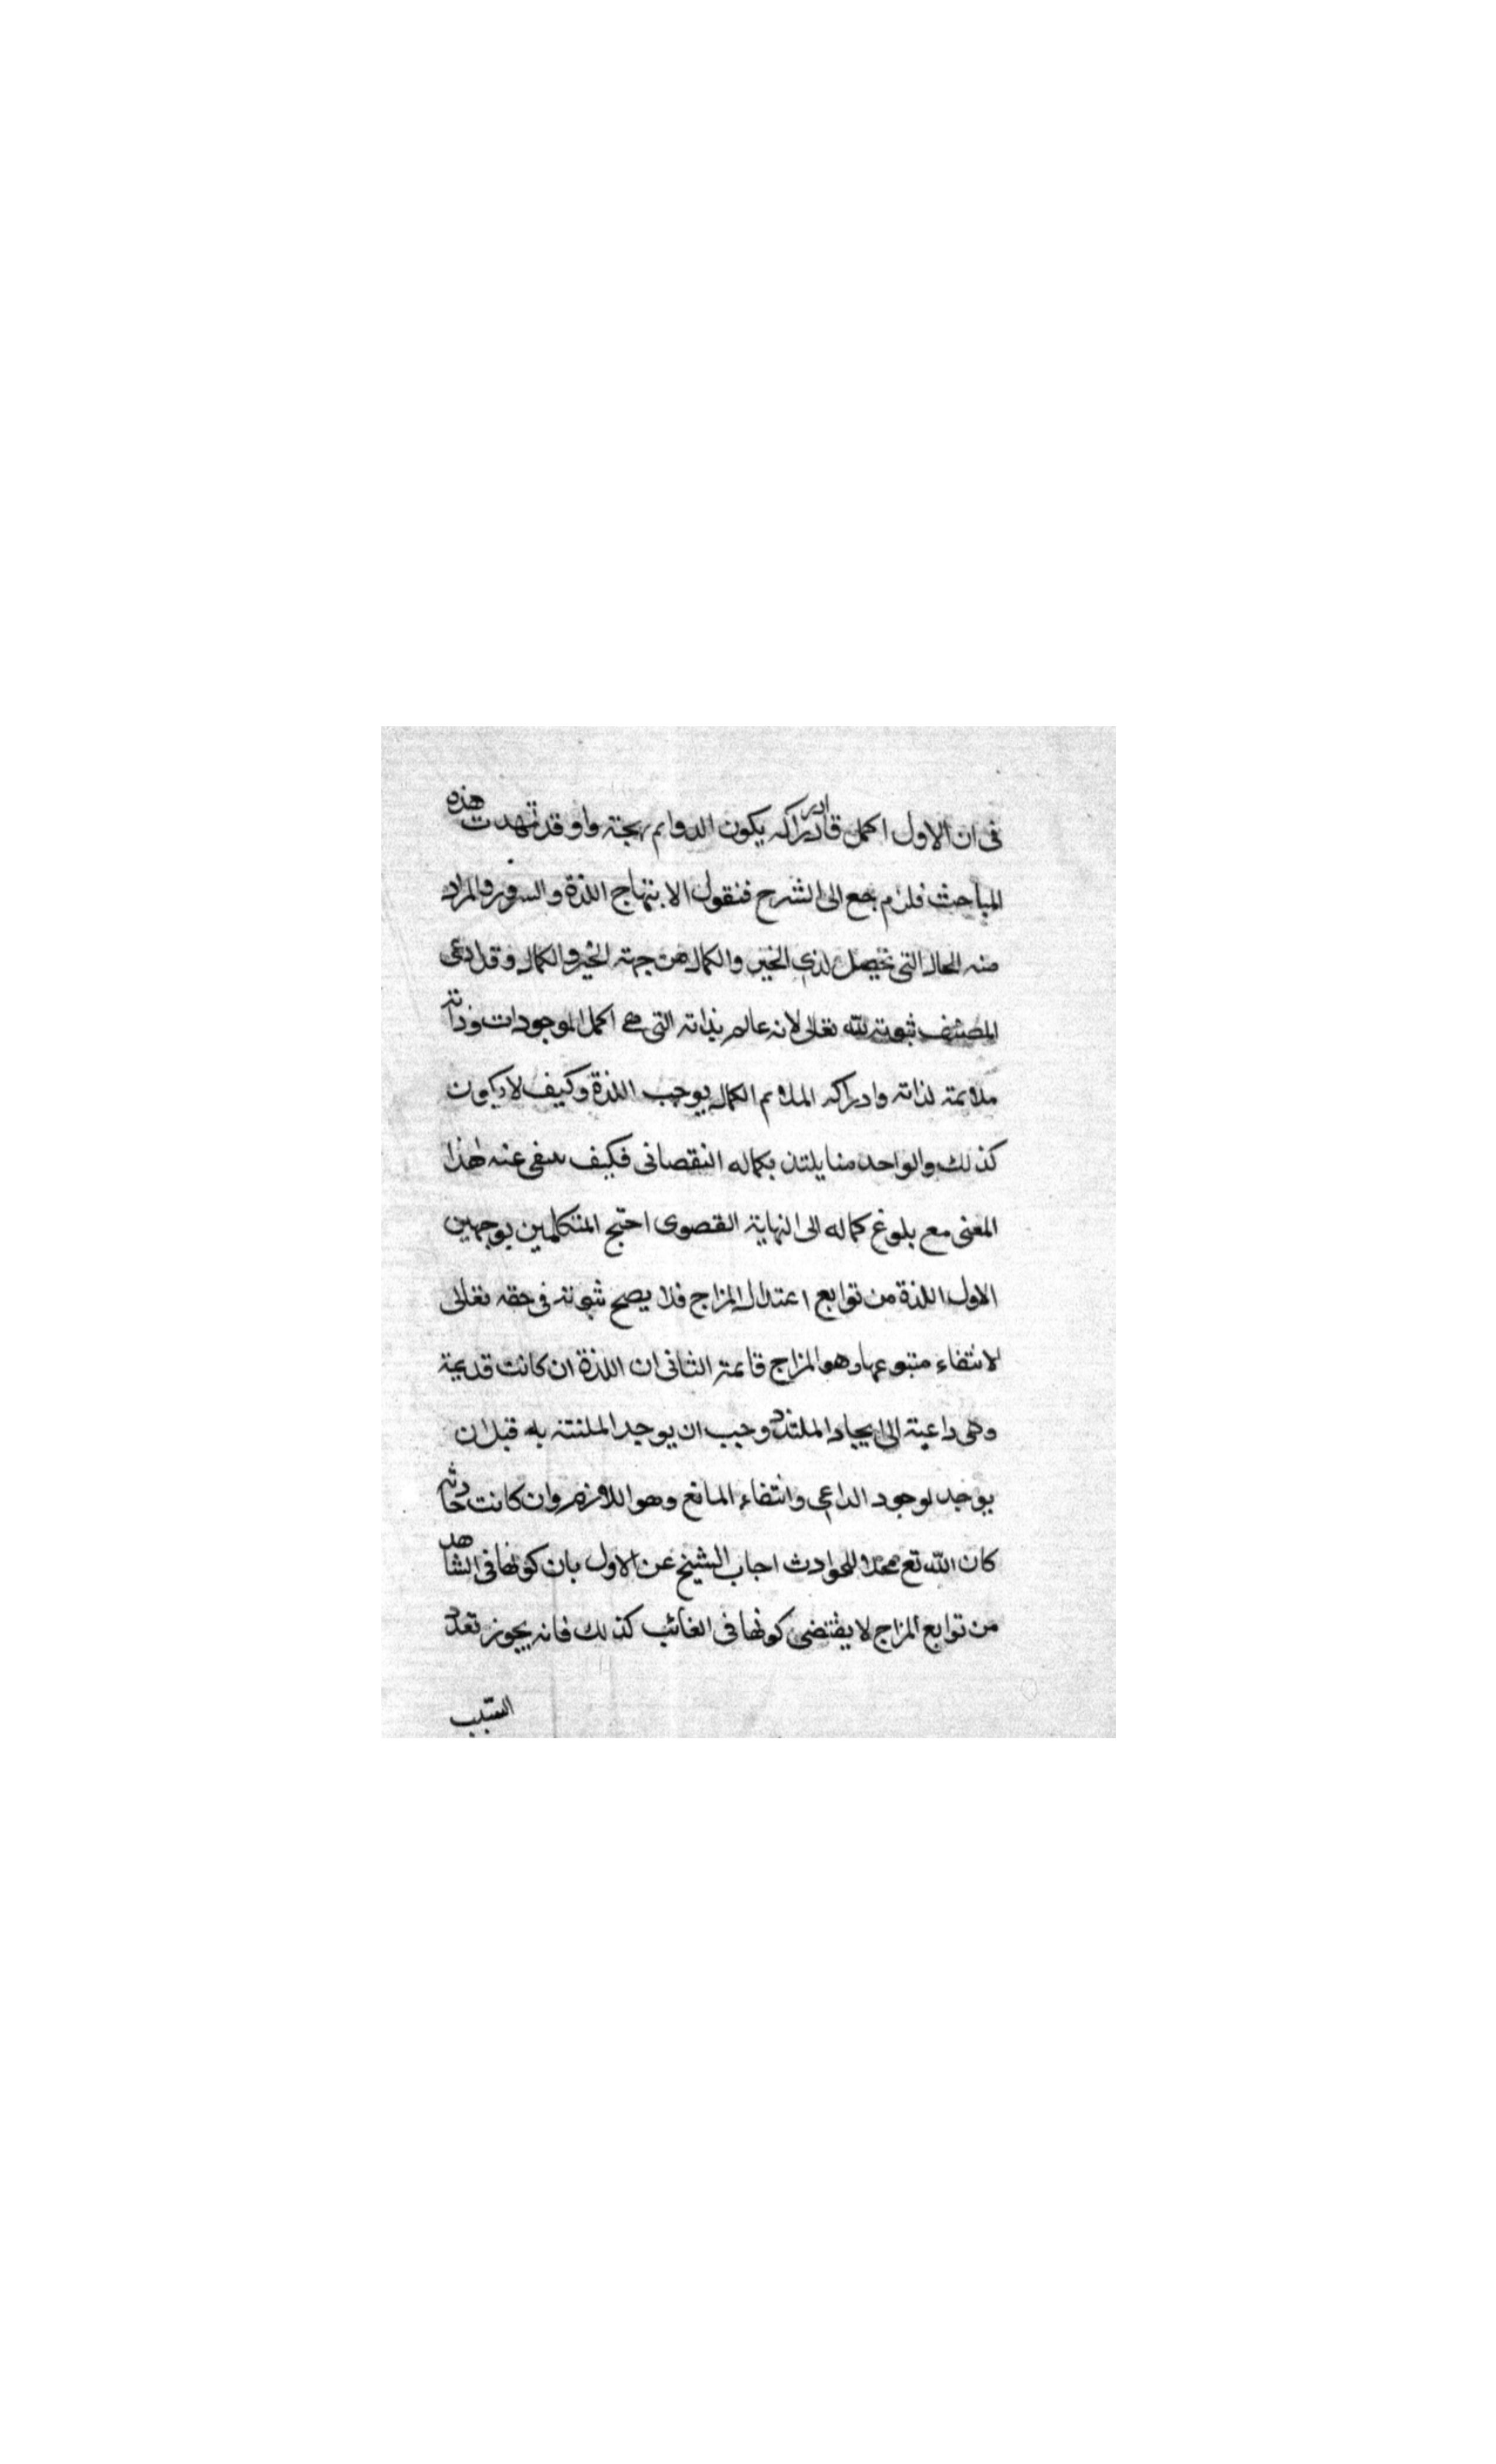 فى ان الاول اكمل قادراكه يكون الدوايم بهجته واو قد تمهدت هذه
المباحث فلنرجع الى الشرح فنقول الابتهاج اللذة والسرور والمراد
منه الحال التى تحصل لذى الخير والكمال من جهته الخير والكمال وقد ادعى
المصنف ثبوته لله تعالى لانه عالم بذاته التى هى اكمل الموجودات وذاته
ملايمته لذاته وادراكه الملايم الكمال يوجب اللذة وكيف لا يكون
كذلك والواحد منا يلتذ بكماله النقصانى فكيف ينفى عنه هذا
المعنى مع بلوغ كماله الى النهاية القصوى احتج المتكلمين بوجهين
الاول اللذة من توابع اعتدال المزاج فلا يصح ثبوته فى حقه تعالى
لانتفاء متبوعها وهو المزاج قايمته الثانى ان اللذة ان كانت قديمة
وهى داعية الى ايجاد الملتذ وجب ان يوجد الملتذ به قبل ان
يوجد لوجود الداعى وانتفاء المانع وهو اللازم وان كانت حادثه
كان الله تع محلا للحوادث اجاب الشيخ عن الاول بان كونها فى الشاهد
من توابع المزاج لا يقتضى كونها فى الغائب كذلك فانه يجوز تعدد
السبب